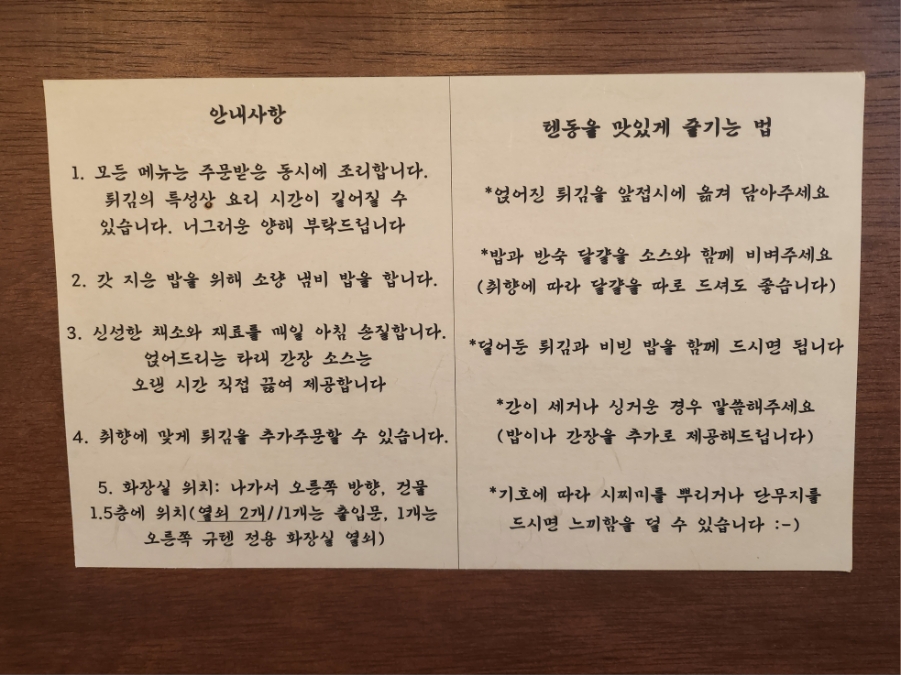 안내사항
1. 모든 메뉴는 주문받은 동시에 조리합니다.
튀김의 특성상 요리 시간이 길어질 수
있습니다. 너그러운 양해 부탁드립니다
2. 갓 지은 밥을 위해 소량 냄비 밥을 합니다.
3. 신선한 채소와 재료를 매일 아침 손질합니다.
얹어드리는 타래 간장 소스는
오랜 시간 직접 끓여 제공합니다
4. 취향에 맞게 튀김을 추가주문할 수 있습니다.
5. 화장실 위치: 나가서 오른쪽 방향, 건물
1.5층에 위치(열쇠 2개//1개는 출입문, 1개는
오른쪽 규텐 전용 화장실 열쇠)
텐동을 맛있게 즐기는 법
*얹어진 튀김을 앞접시에 옮겨 담아주세요
*밥과 반숙 달걀을 소스와 함께 비벼주세요
(취향에 따라 달걀을 따로 드셔도 좋습니다)
*덜어둔 튀김과 비빈 밥을 함께 드시면 됩니다
*간이 세거나 싱거운 경우 말씀해주세요
(밥이나 간장을 추가로 제공해드립니다)
*기호에 따라 시찌미를 뿌리거나 단무지를
드시면 느끼함을 덜 수 있습니다 :-)